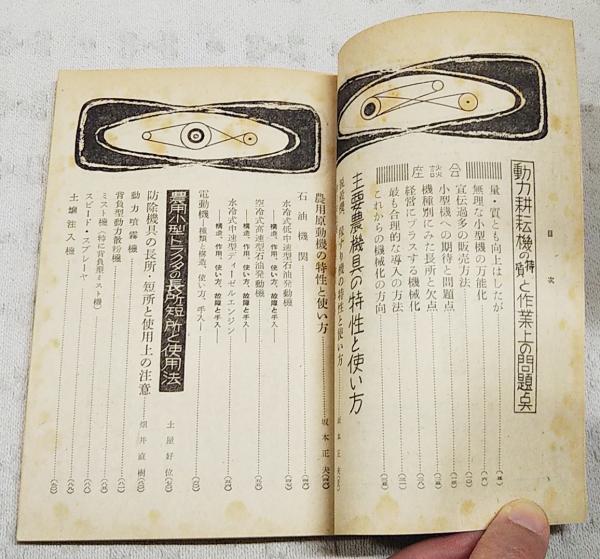 目次
動力耕耘機の特性と作業上の問題点
座談会
量・質とも向上はしたが
無理な小型機の万能化
宣伝過多の販売方法
小型機への期待と問題点
機種別にみた長所と欠点
経営にプラスする機械化
最も合理的な導入の方法
これからの機械化の方向
主要農機具の特性と使い方
機の特性と使い方
坂本正夫
農用原動機の特性と使い方
坂本正夫
石油機関
水冷式低中速型石油発動機
―構造、作用、使い方、故障と手入―
空冷式高速型石油発動機
―構造、作用、使い方、故障と手入―
水冷式中速型ディーゼルエンジン
―構造、作用、使い方、故障と手入―
電動機―種類と構造、使い方、手入―
農用小型トラクタの長所短所と使用法
土屋好位
防除機具の長所・短所と使用上の注意
畑井直樹
動力噴霧機
背負型動力散粉機
ミスト機（特に背負型ミスト機）
スピード・スプレーヤ
土壌注入機